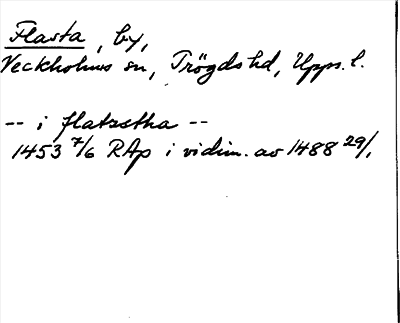 Flasta, by,
Veckholms sn, Trögds hd, Upps. l.
-- i flatzstha --
1453 7/6 RAp i vidim. av 1488 29/1